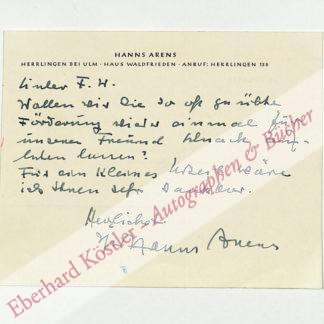 HANNS ARENS
HERRLINGEN BEI ULM · HAUS WALDFRIEDEN · ANRUF: HERRLINGEN 138
Lieber F. W.
Wollen wir die so oft geübte
Förderung wieder einmal für
unseren Freund
lassen?
Für ein kleines wäre
ich Ihnen sehr dankbar.
Herzlichst
Ihr Hanns Arens
Eberhard Köstler - Autographen & Bücher